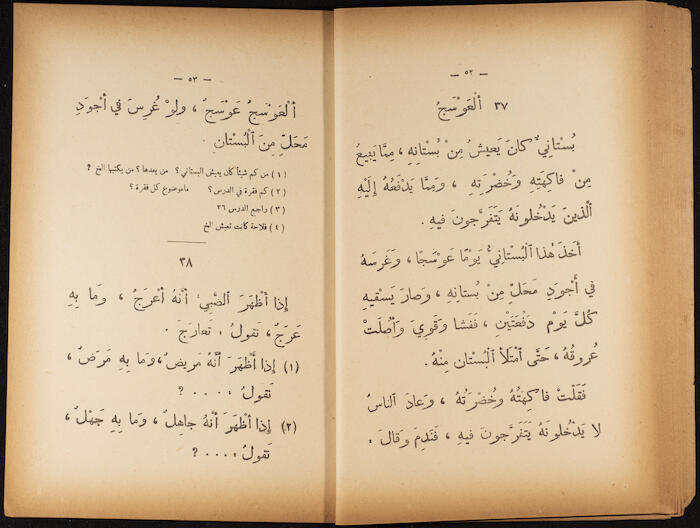 — ٥٢ —
٣٧ ألعَوْسَجُ
بُسْتانيٌ كانَ يَعيشُ مِنْ بُستانِهِ ، مِمَّا يَبيعُ
مِنْ فاكِهَتِهِ وَخُضْرَتِهِ ، وَمِمَّا يَدْفَعُهُ إِلَيْهِ
أَلَّذينَ يَدْخُلونَهُ يَتَفَرَّجونَ فيهِ .
أَخَذَ هٰذا ألبُسْتانيُّ يَوْمًا عَوْسَجًا ، وَغَرَسَهُ
في أجوَدِ مَحَلٍّ مِنْ بُستانِهِ ، وَصارَ يَسْقيهِ
كُلَّ يَوْمٍ دَفْعَتَيْنِ ، فَفَشا وَقَوِيَ وَأَصَلَتْ
عُروقُهُ ، حَتَّى أمْتَلَأ ألبُسْتان مِنْهُ .
فَقَلَّتْ فاكِهَتُهُ وَخُضْرَتُهُ ، وَعادَ ألناسُ
لا يَدْخُلونَهُ يَتَفَرَّجونَ فيهِ ، فَنَدِمَ وَقالَ :
— ٥٣ —
ألعَوْسَجُ عَوْسَجٌ ، ولوْ غُرِسَ في أجْوَدِ
مَحَلٍّ مِنَ ألبُسْتانِ .
(١) من كم شيئا كان يعيش البستاني ؟ من يعدها ؟ من يكتبها الخ ؟
(٢) كم فقرة في الدرس ؟ ماموضوع كل فقرة ؟
(٣) راجع الدرس ٢٦
(٤) فلاحة كانت تعيش الخ
٣٨
إذا أظْهَرَ ألصَّبِيُّ أنَّهُ أعْرَجُ ، وَما بِهِ
عَرَجٌ ، نَقولُ : تَعارَجَ .
(١) إذا أَظْهَرَ أنَّهُ مَريضٌ ، وَما بِهِ مَرَضٌ ،
نَقولُ : . . . . ؟
(٢) إذا أظْهَرَ أنَّهُ جاهِلٌ ، وَما بِهِ جَهْلٌ ،
نَقولُ : . . . . ؟